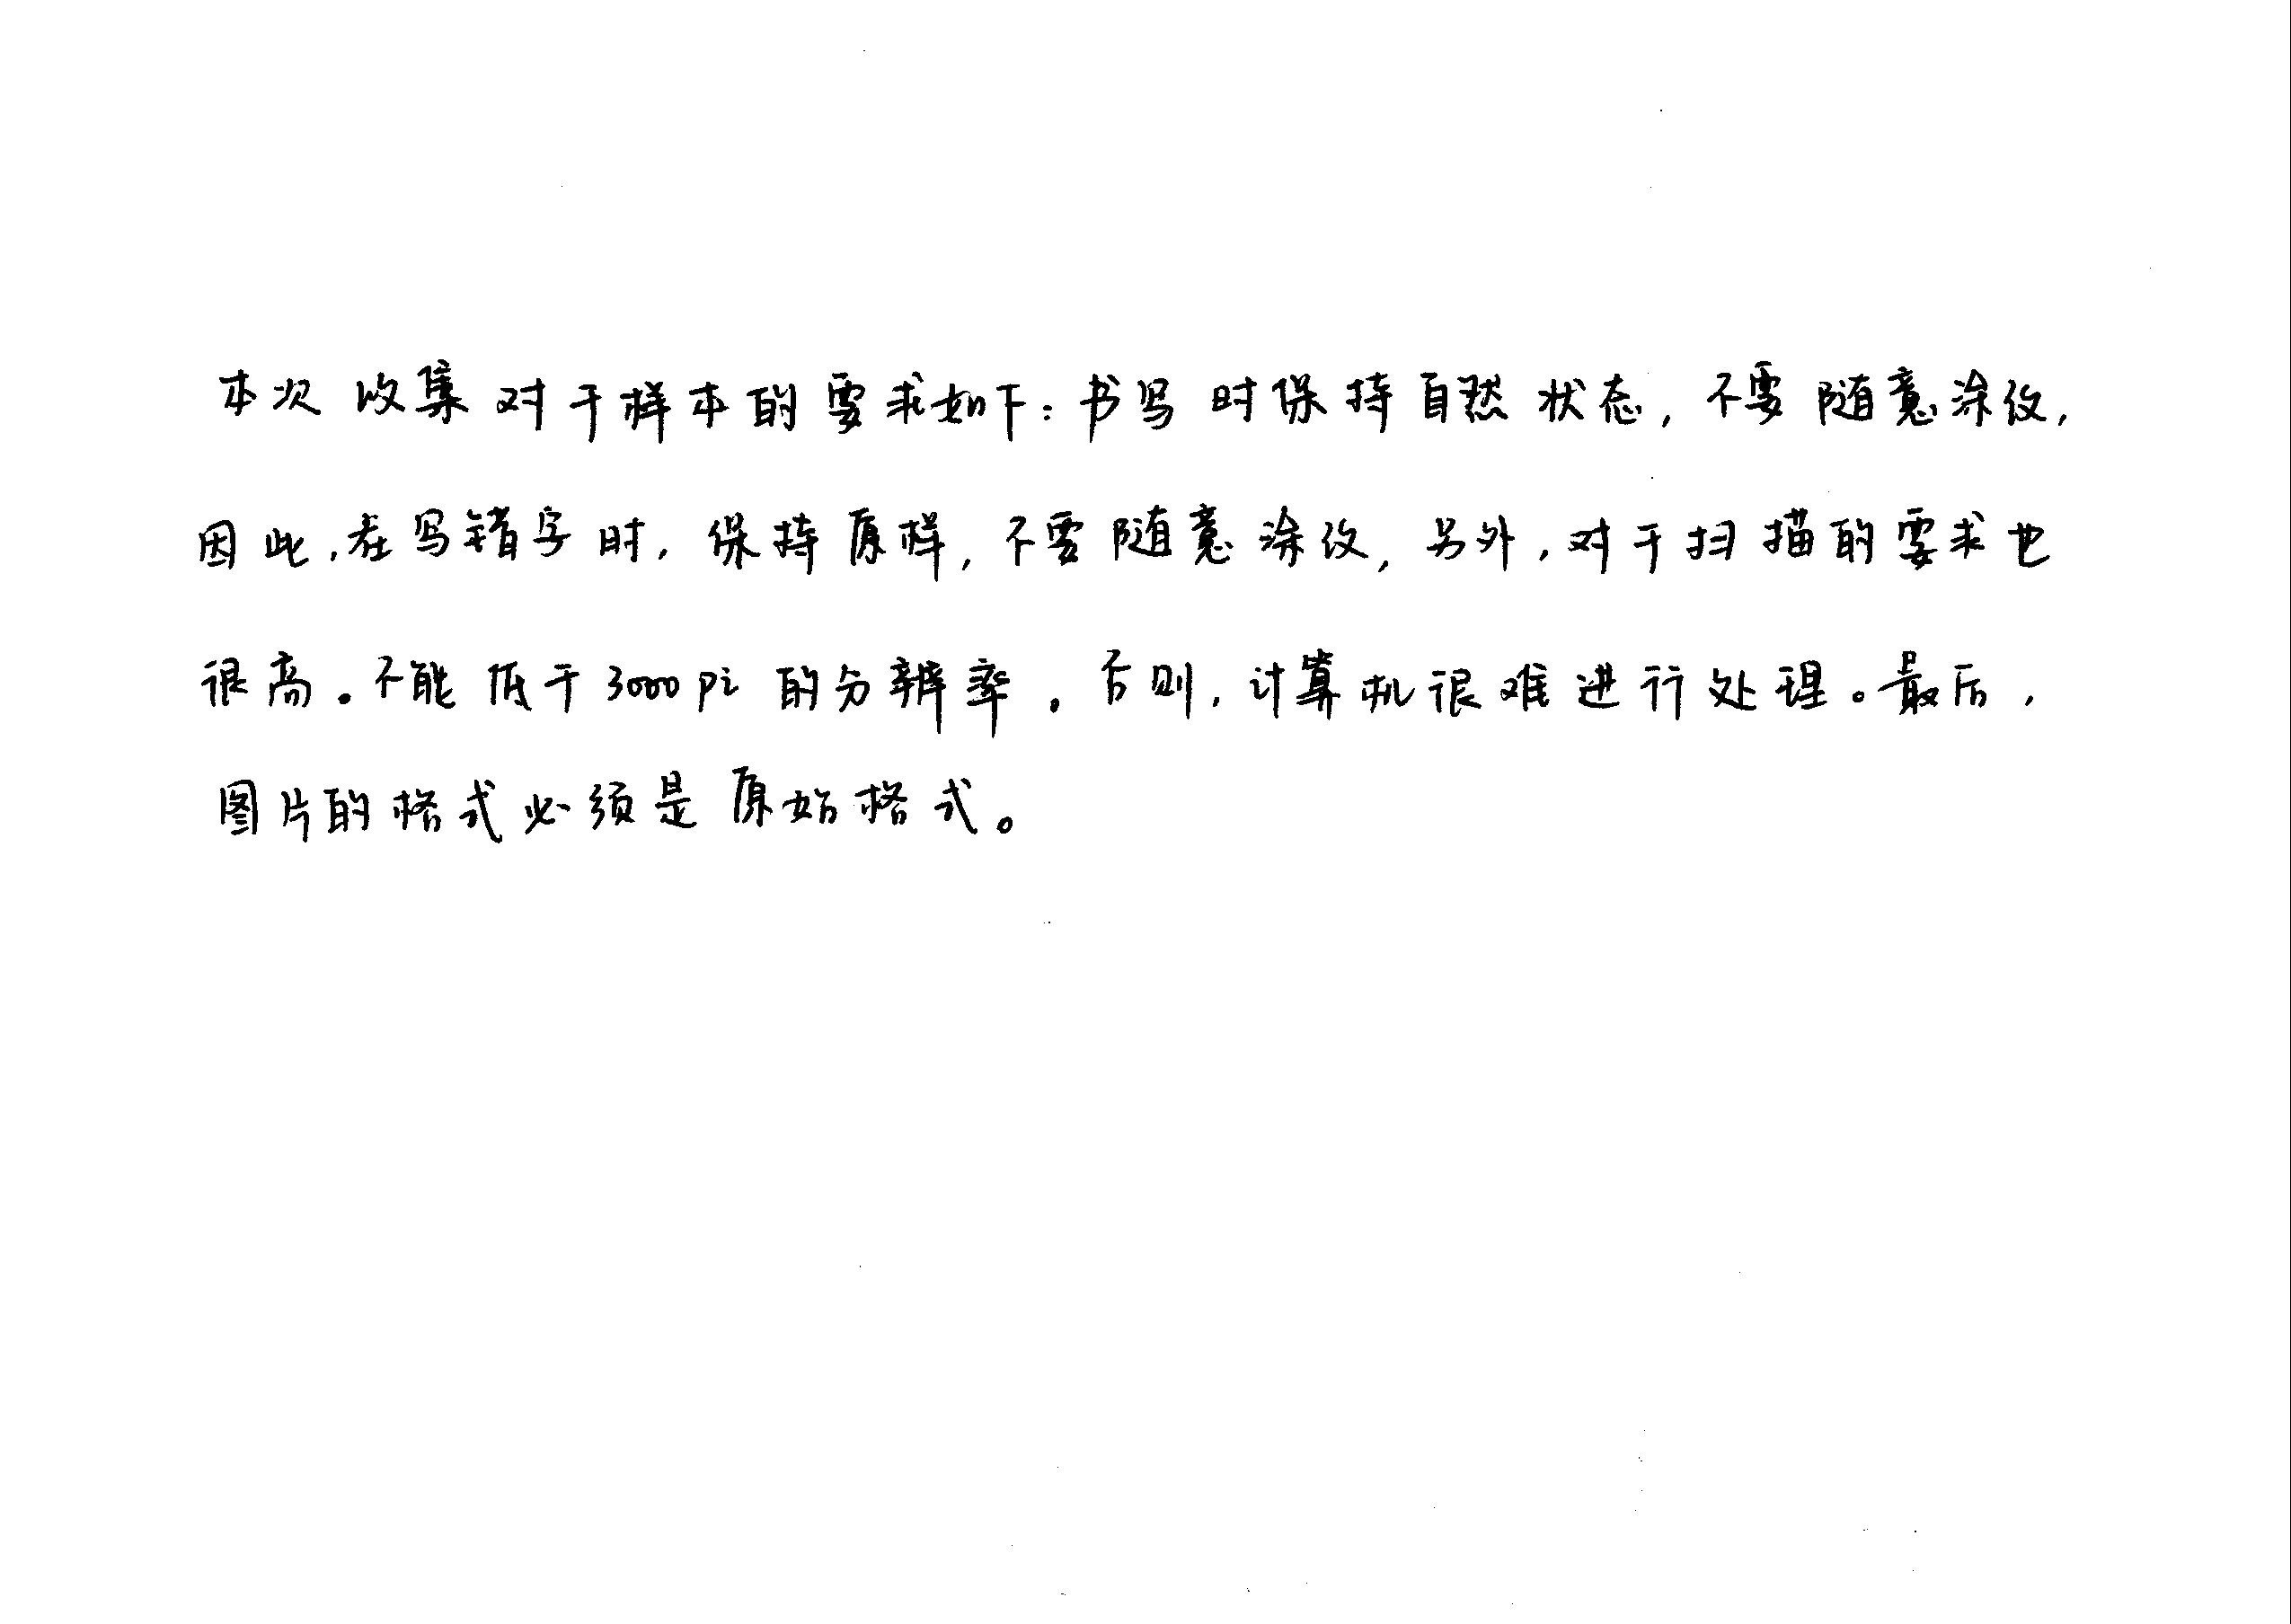 本次收集对于样本的要求如下：书写时保持自然状态，不要随意涂改，
因此，在写错字时，保持原样，不要随意涂改，另外，对于扫描的要求也
很高。不能低于3000pi的分辨率。否则，计算机很难进行处理。最后，
图片的格式必须是原始格式。